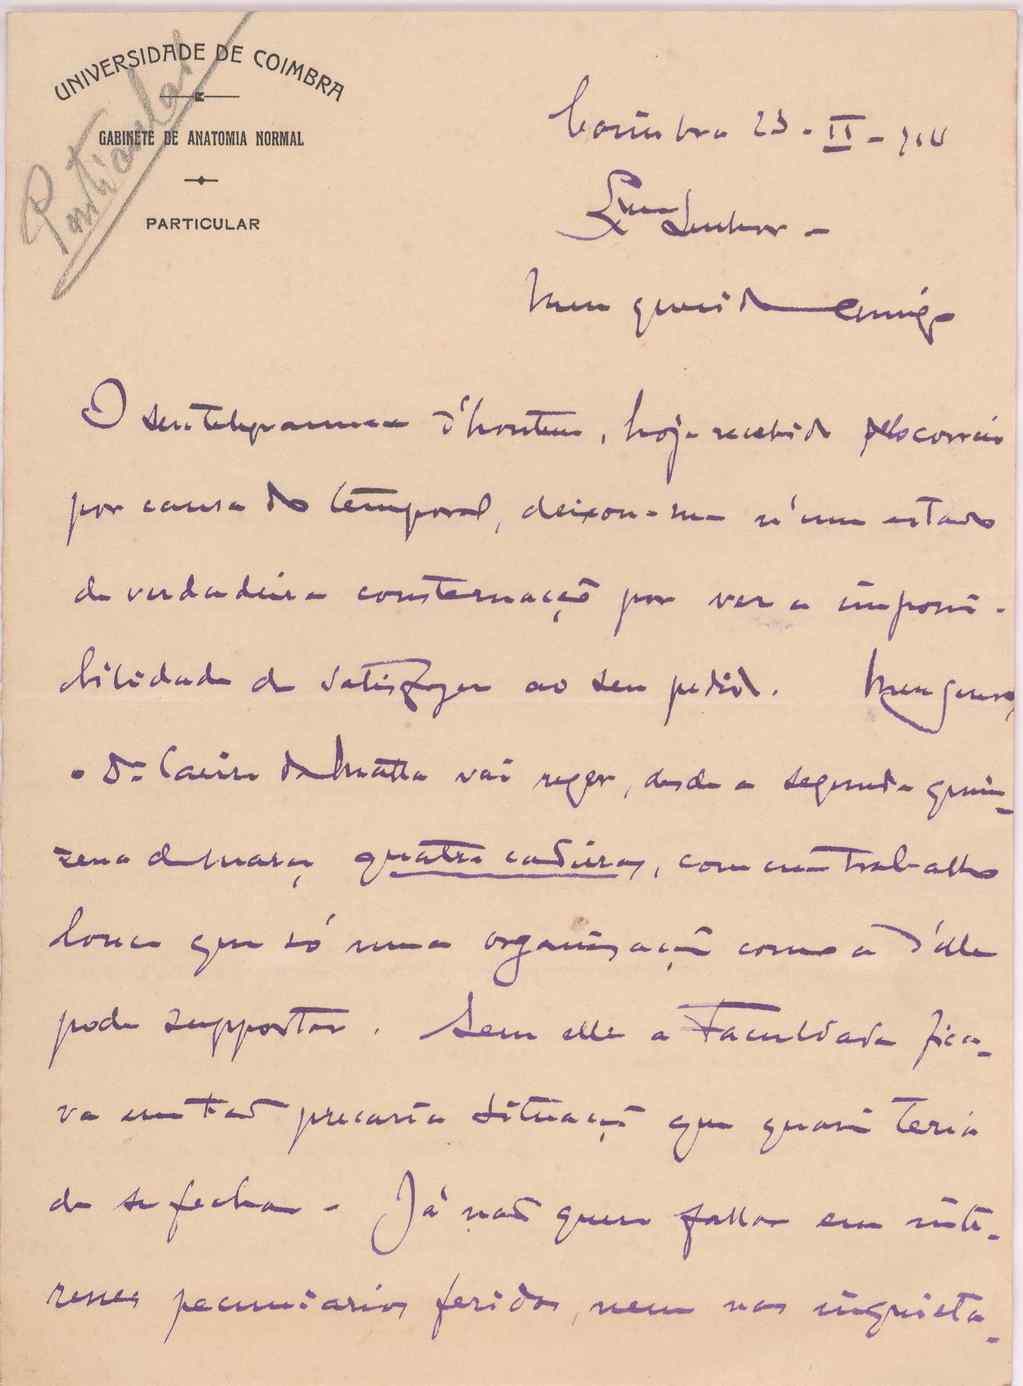 UNIVERSIDADE DE COIMBRA
GABINETE DE ANATOMIA NORMAL
PARTICULAR
Particular
Coimbra 23-II-
Exmo Senhor -
Meu querido Amigo
O seu telegramma d'hontem, hoje recebido pelo correio
por causa do temporal, deixou-me n'um estado
de verdadeira consternação por ver a impossi-
bilidade de satisfazer ao seu pedido. Meu genro,
o Dr Caeiro da Matta vai reger, desde a segunda quin-
zena de março, quatro cadeiras, com um trabalho
louco que só uma organisação como a d'elle
pode supportar. Sem elle a Faculdade fica-
va em tão precaria situação que quasi teria
de se fechar. Já não quero fallar em inte-
resses pecuniarios feridos, nem nas inquieta-